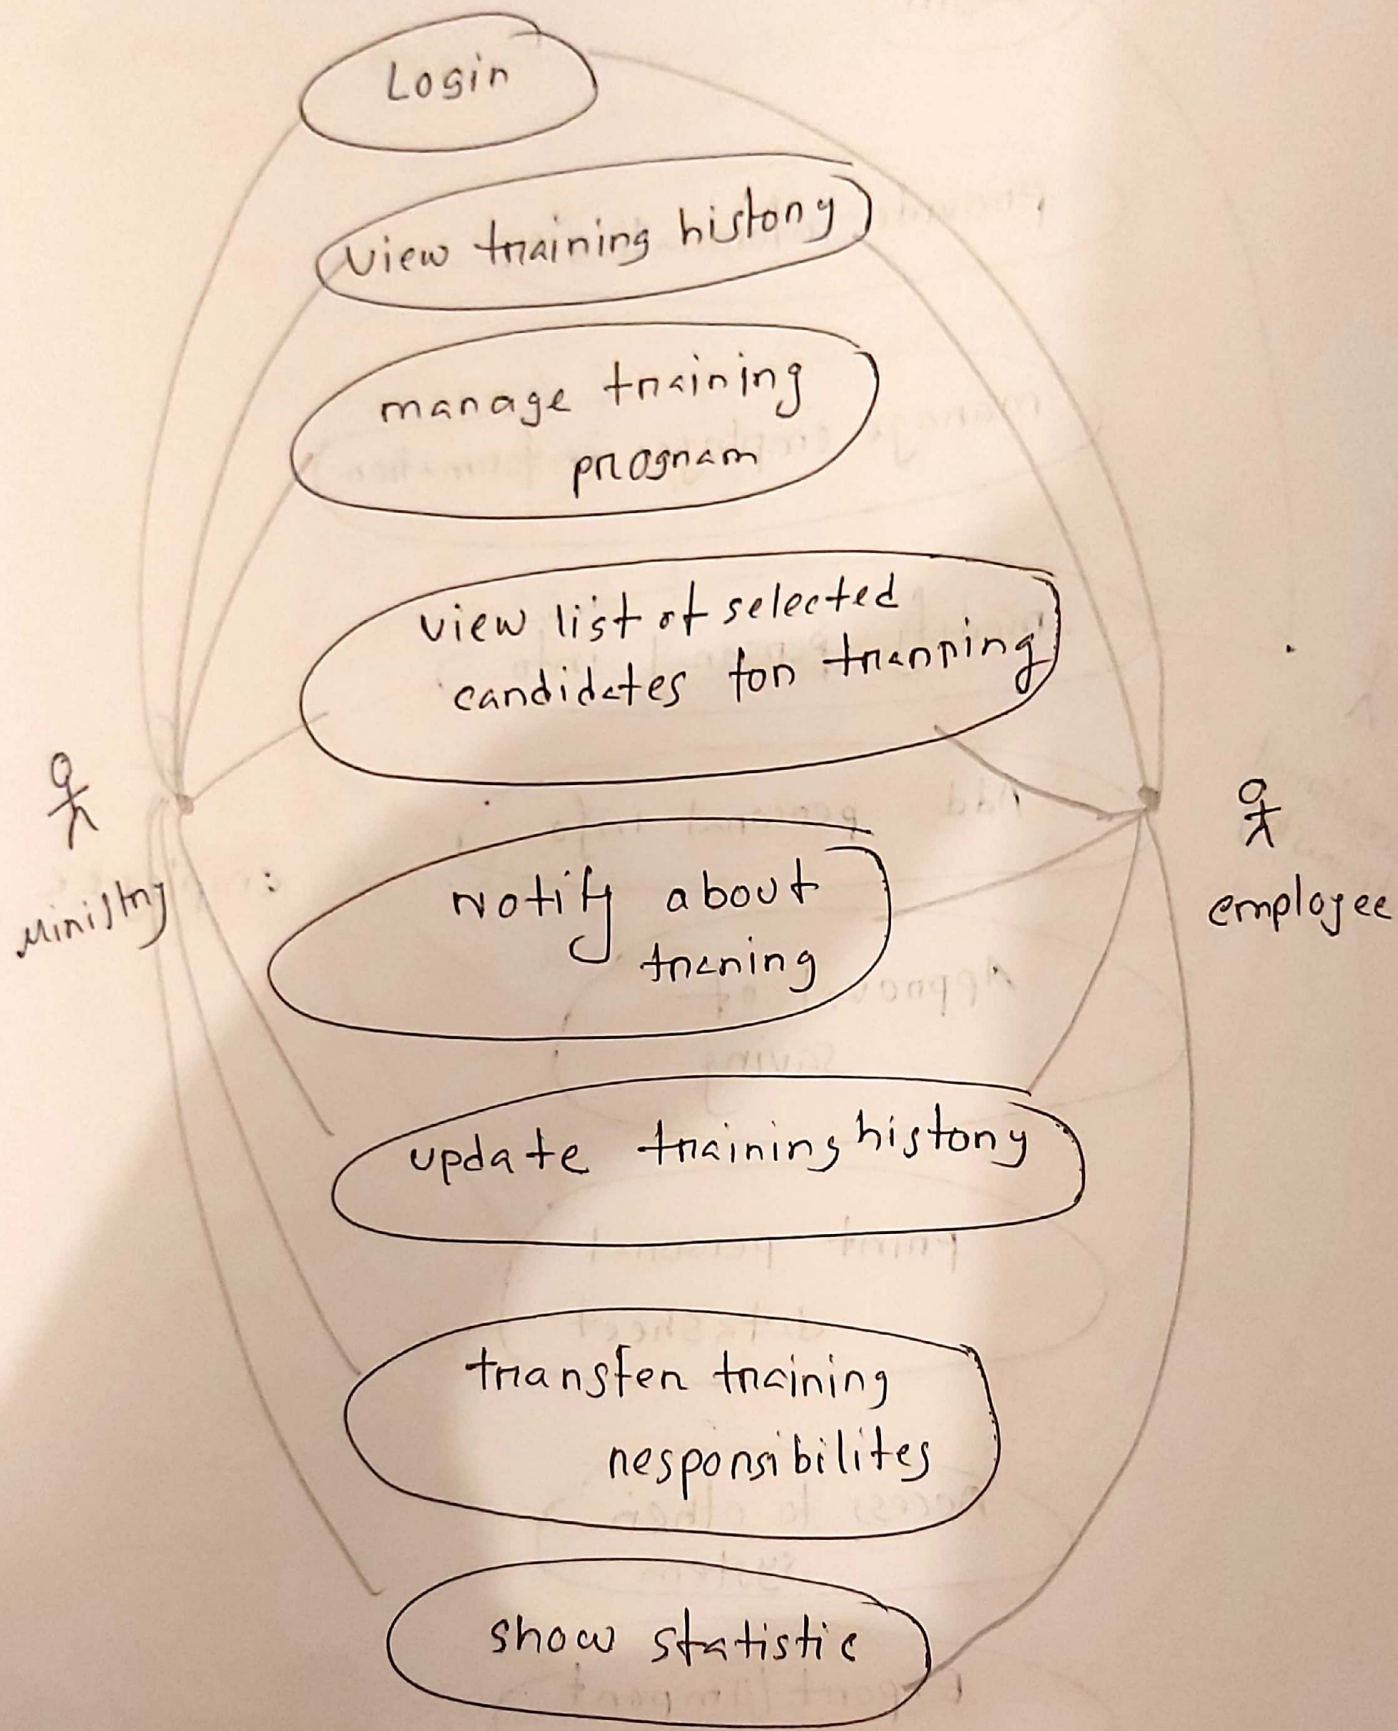 Login
view training history
manage training
program
view list of selected
candidates for tranning
Ministry
employee
Notify about
traning
update training history
transfer training
responsibilites
show statistic